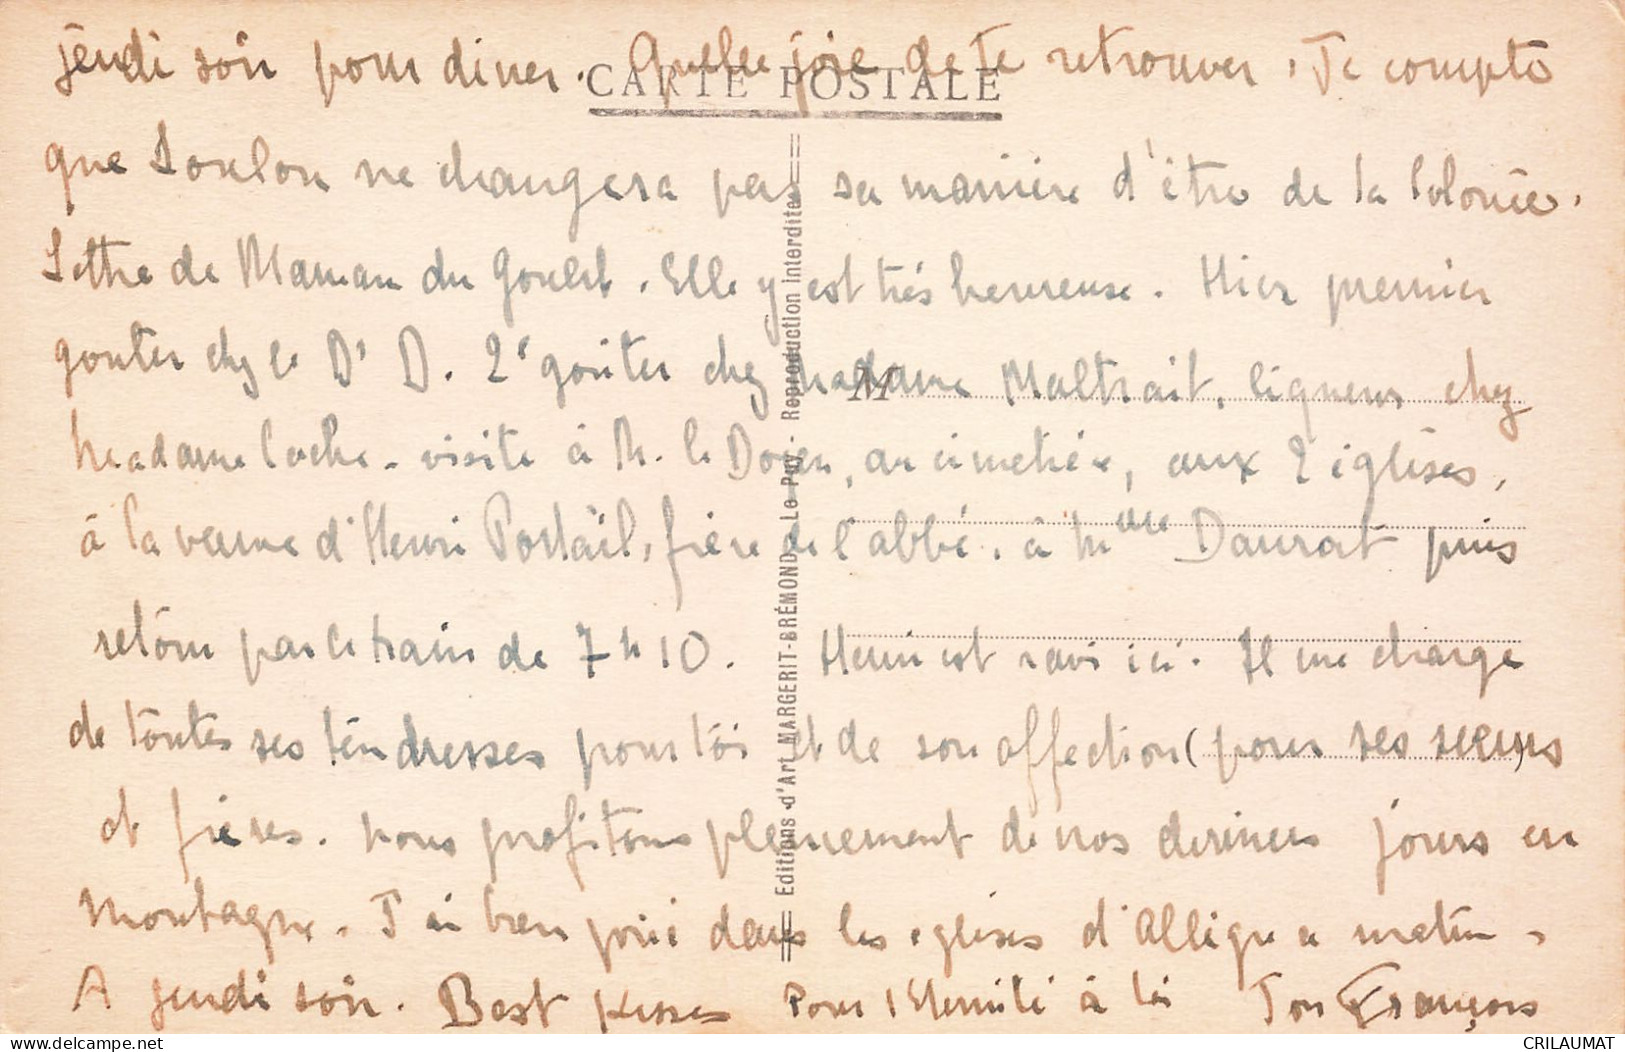 jeudi soir pour diner. Quelle joie de te retrouver. Je compte
CARTE POSTALE
que Toulon ne changera pas sa manière d'être de la Colonie.
Lettre de Maman du Goulet. Elle y est très heureuse. Hier premier
gouter chez le Dr D. 2e goûter chez Madame Maltrait, liqueur chez
Madame Coche - visite à M. le Doyen, au cimetière, aux 2 églises,
à la veuve d'Henri Portail, frère de l'abbé, à Mme Daurat puis
retour par le train de 7h10. Henri est ravi ici. Il me charge
de toutes ses tendresses pour toi et de son affection (pour ses sœurs)
et frères. Nous profitons pleinement de nos derniers jours en
montagne. J'ai bien prié dans les églises d'Allègre ce matin.
A jeudi soir. Best kisses Pour l'Eternité à toi Ton François
Editions d'Art MARGERIT-BRÉMOND. Le Puy - Reproduction interdite
M
CRILAUMAT